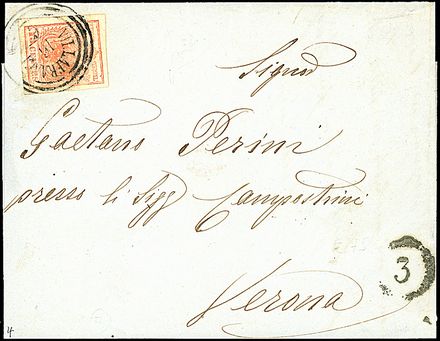 VILLAFRANCA
Signor
Gaetano Perini
presso li Sigg Campostrini
Verona
3
4